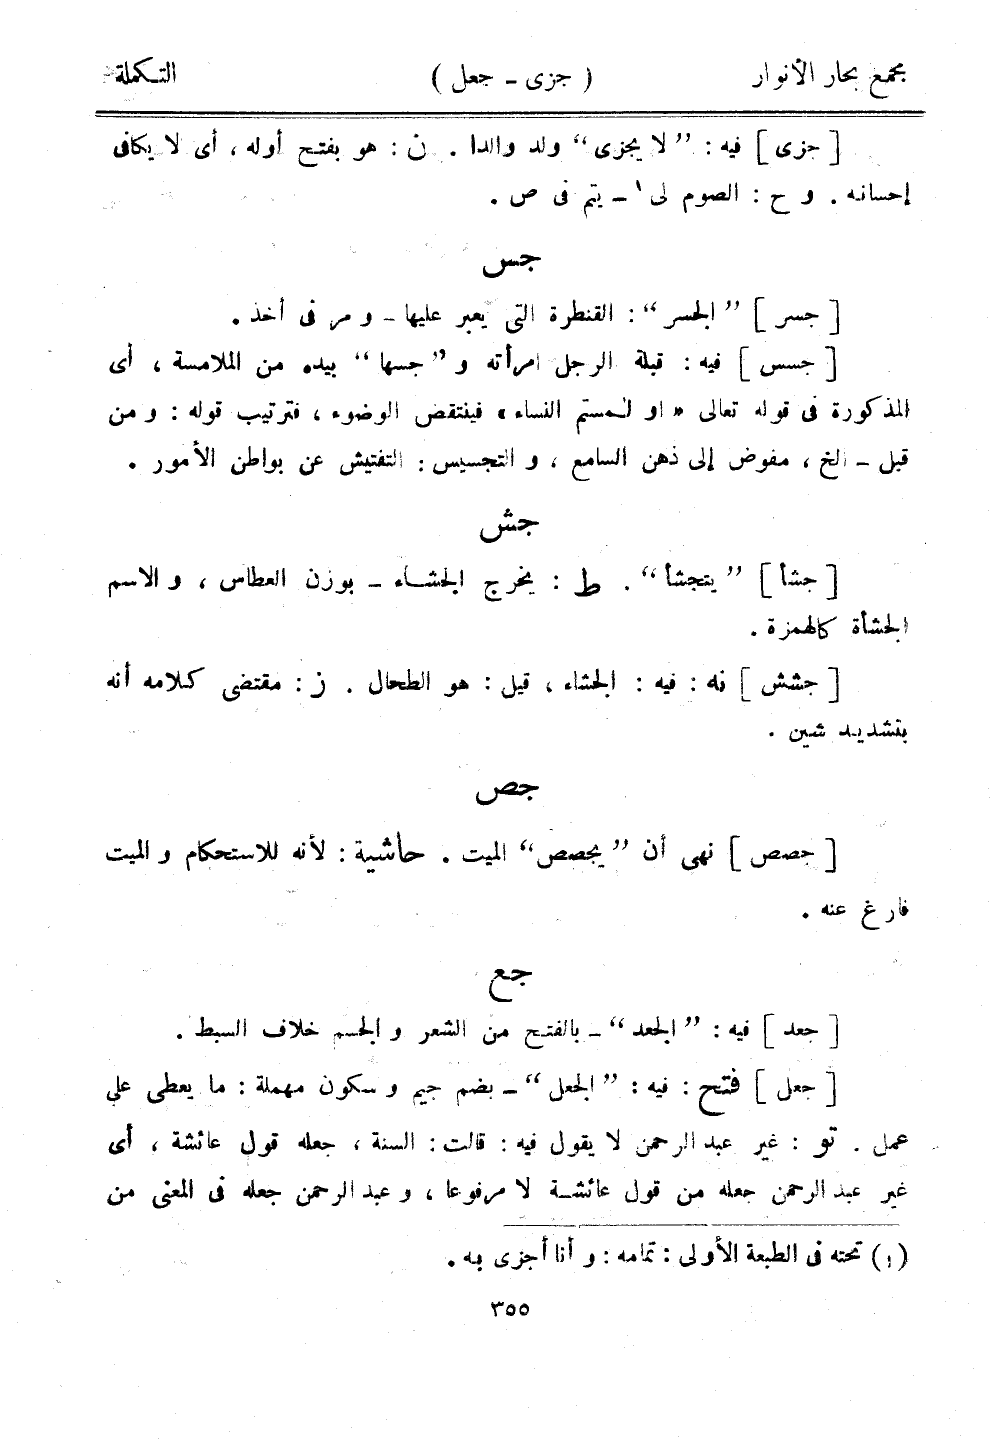 مجمع بحار الأنوار ( جزى ـ جعل ) التكملة
[ جزى ] فيه : ”لا يجزى“ ولد والدا . ن : هو بفتح أوله ، أى لا يكافى
إحسانه . و ح : الصوم لى١ ـ يتم فى ص .
جس
[ جسر ] ”الجسر“ : القنطرة التى يعبر عليها ـ و مر فى أخذ .
[ جسس ] فيه : قبلة الرجل امرأته و ”جسها“ بيده من الملامسة ، أى
المذكورة فى قوله تعالى «او لمستم النساء» فينتقض الوضوء ، فترتيب قوله : و من
قبل ـ الخ ، مفوض إلى ذهن السامع ، و التجسيس : التفتيش عن بواطن الأمور .
جش
[ جشأ ] ”يتجشأ“ . ط : يخرج الجشاء ـ بوزن العطاس ، و الاسم
الجشأة كالهمزة .
[ جشش ] نه : فيه : الجشاء ، قيل : هو الطحال . ز : مقتضى كلامه أنه
بتشديد شين .
جص
[ جصص ] نهى أن ”يجصص“ الميت . حاشية : لأنه للاستحكام و الميت
فارغ عنه .
جع
[ جعد ] فيه : ”الجعد“ ـ بالفتح من الشعر و الجسم خلاف السبط .
[ جعل ] فتح : فيه : ”الجعل“ ـ بضم جيم و سكون مهملة : ما يعطى على
عمل . تو : غير عبد الرحمن لا يقول فيه : قالت : السنة ، جعله قول عائشة ، أى
غير عبد الرحمن جعله من قول عائشة لا مرفوعا ، و عبد الرحمن جعله فى المعنى من
(١) تحته فى الطبعة الأولى : تمامه : و أنا أجزى به .
٣٥٥